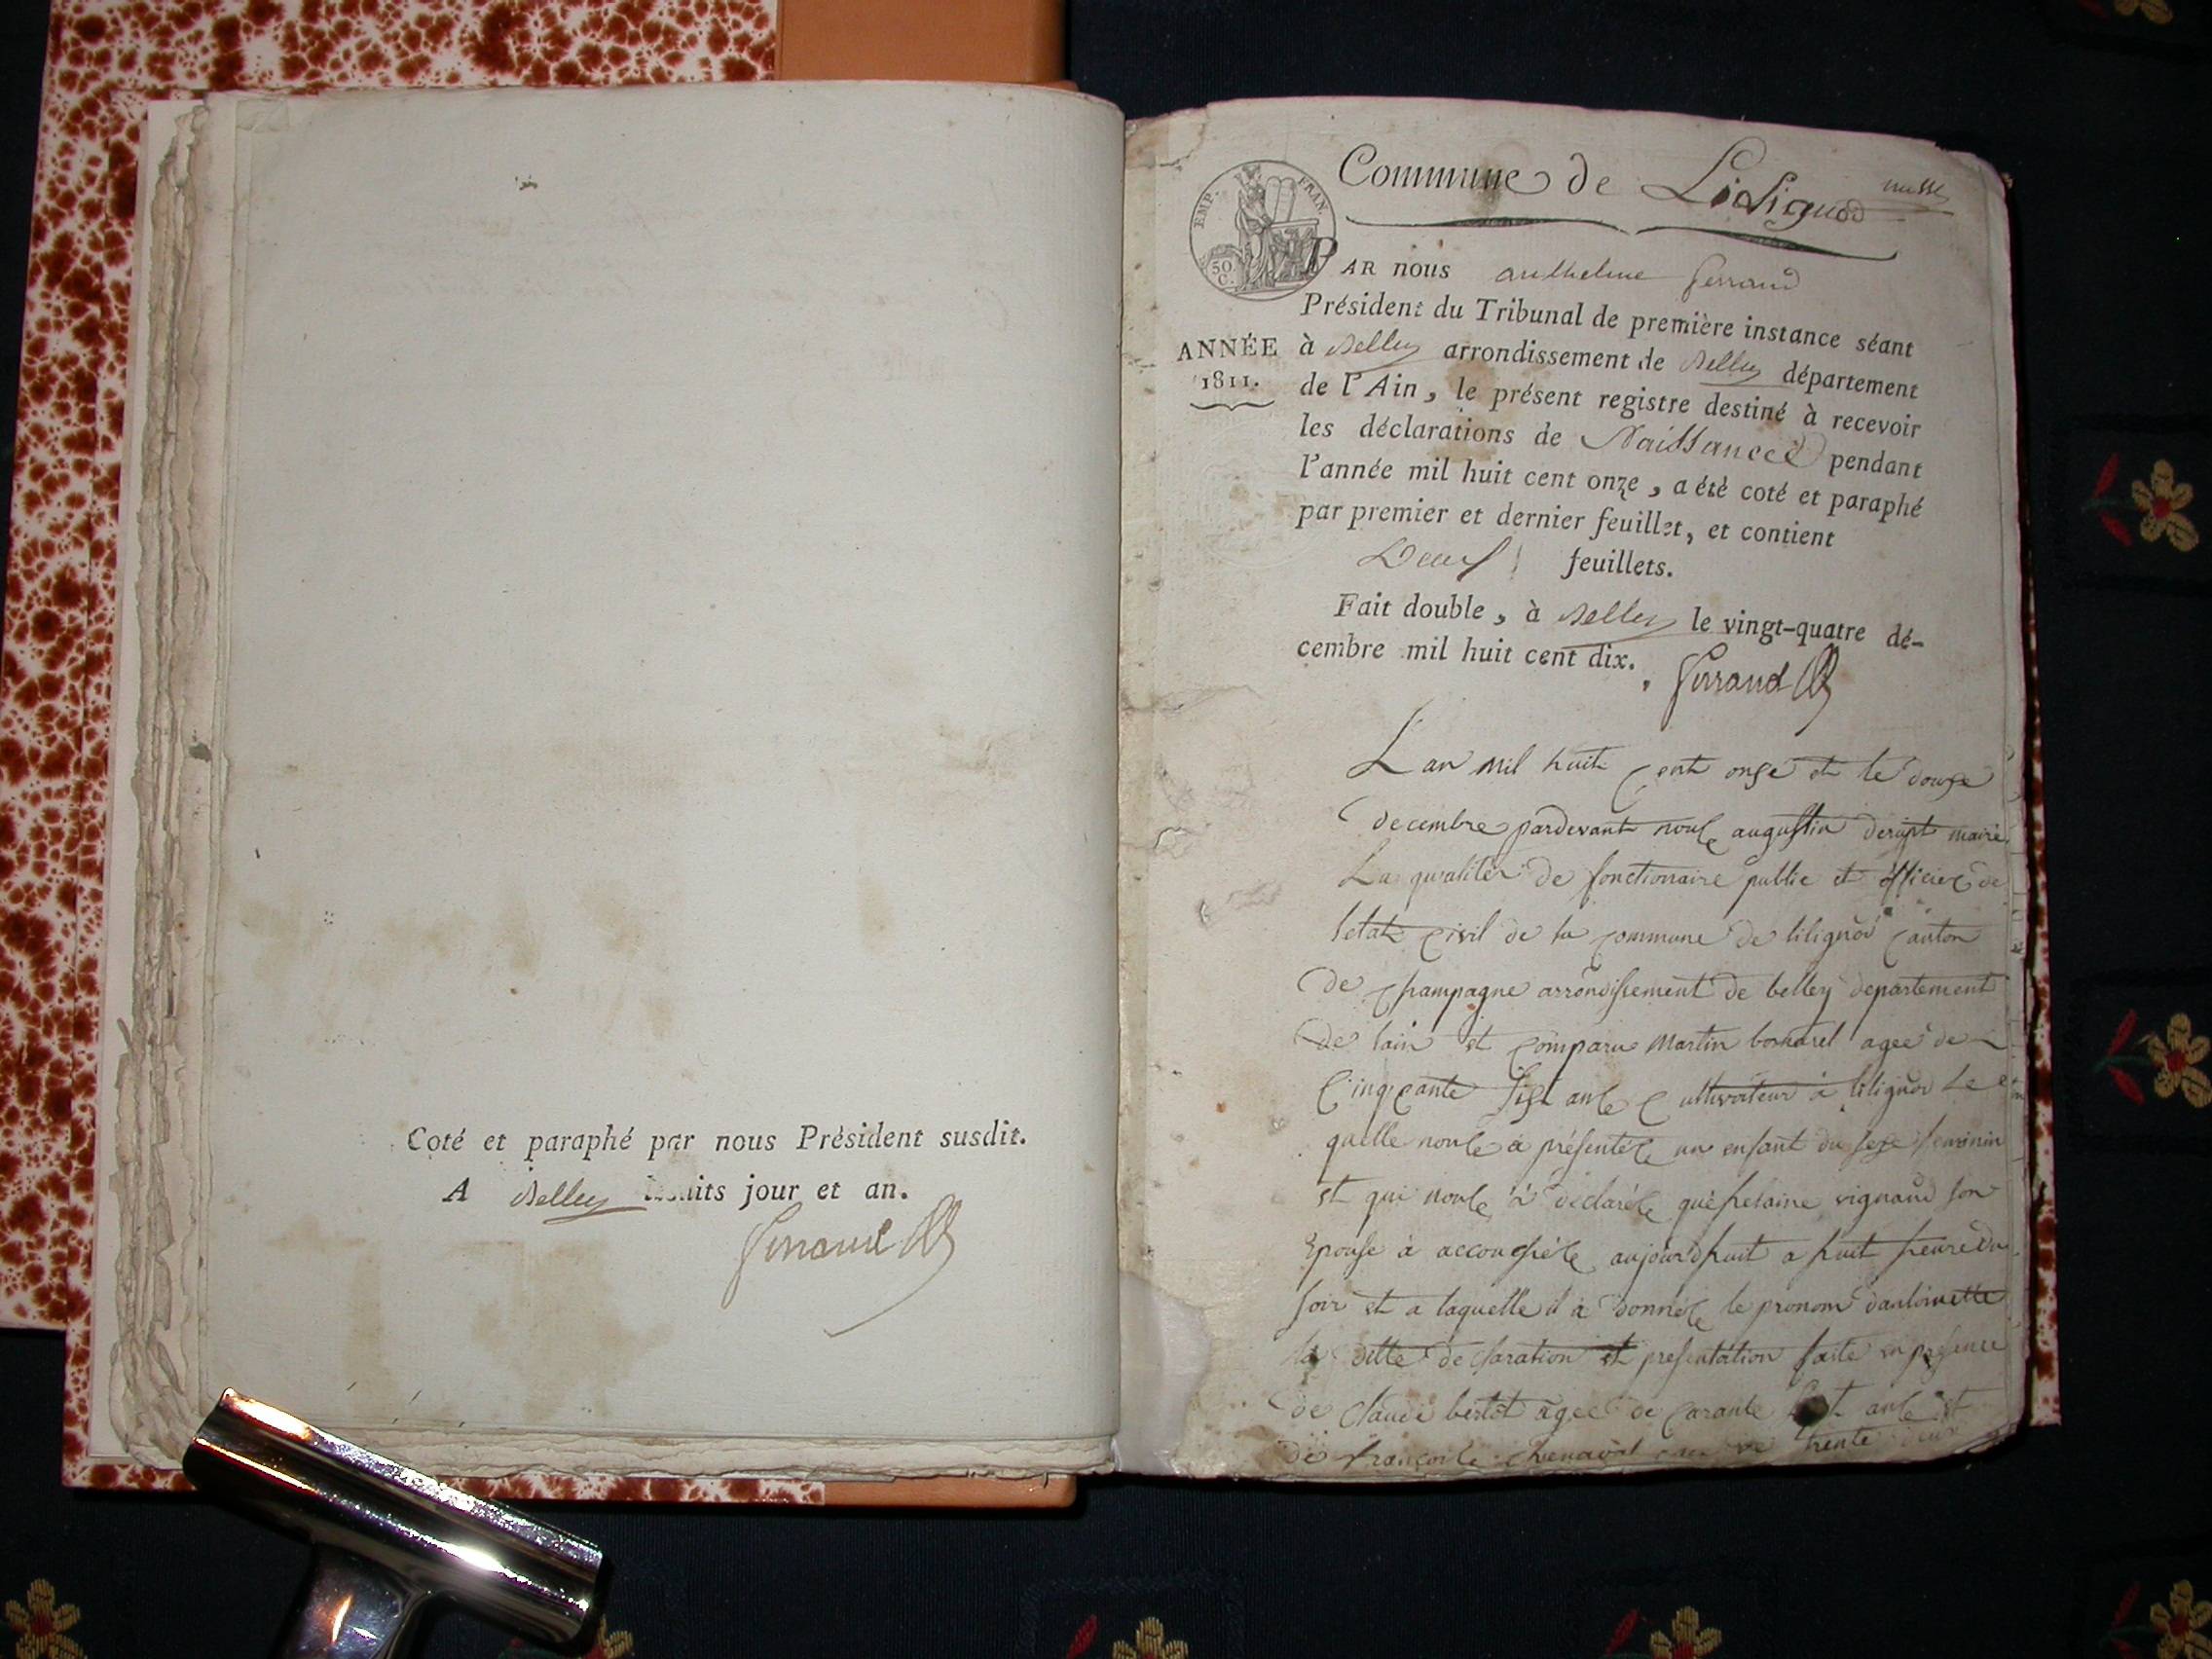 Coté et paraphé par nous Président susdit.
A Belley jour et an.
Ferrand
Commune de Lilignod
EMP. FRAN.
50 C.
PAR nous anthelme ferrand
Président du Tribunal de première instance séant
ANNÉE
1811.
à Belley arrondissement de Belley département
de l'Ain, le présent registre destiné à recevoir
les déclarations de Naissances pendant
l'année mil huit cent onze, a été coté et paraphé
par premier et dernier feuillet, et contient
Deux feuillets.
Fait double, à Belley le vingt-quatre dé-
cembre mil huit cent dix.
Ferrand
L an mil huit cent onze et le douze
decembre pardevant nous augustin maire
La qualiter de fonctionaire public et officier de
letat civil de la commune de lilignod canton
De champagne arrondissement de belley departement
de lain et comparu Martin agee de
Cinqcante six ans cultivateur à lilignod Le
quelle nous a présentés un enfant du sexe feminin
et qui nous à declarés que helaine vignaud son
Epouse à accouchés aujourdhuit a huit heure du
soir et a laquelle il à donnés le pronom dantoinette
la ditte declaration et presentation faite en presence
de claude bertet agee de carante ans et
de françois chenaval agee de trente deux